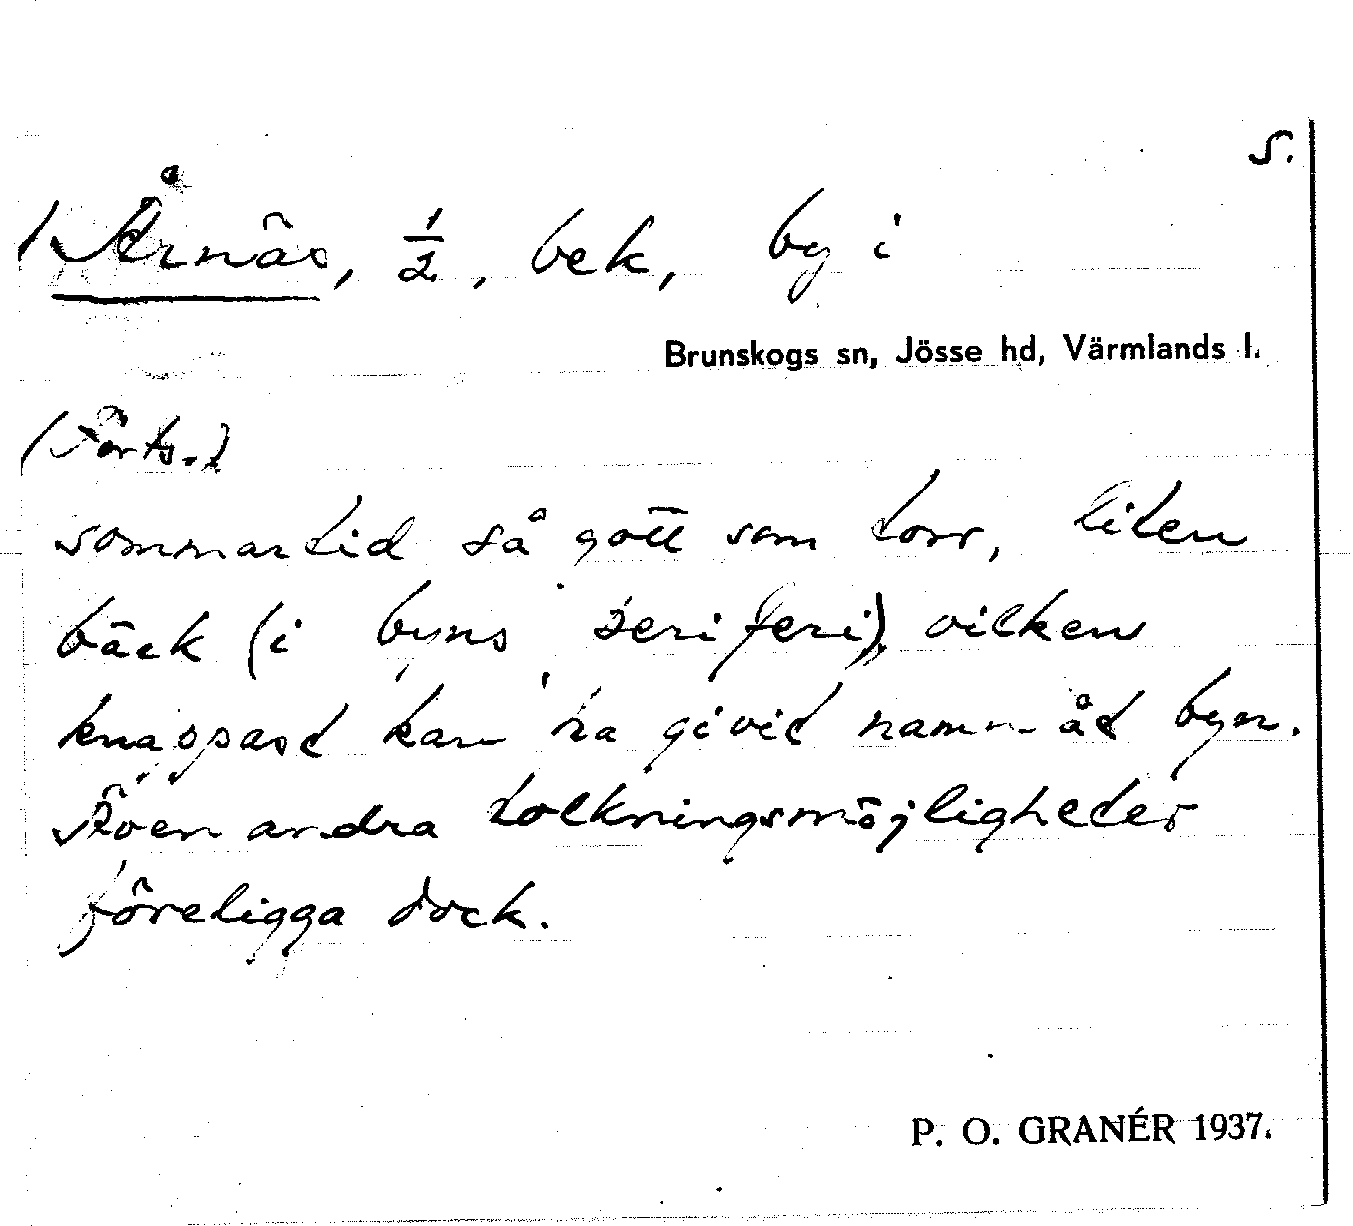 5.
1 Årnäs, 1/2, bek, by i
Brunskogs sn, Jösse hd, Värmlands l.
(Forts.)
sommartid så gott som torr, liten
bäck (i byns periferi), vilken
knappast kan ha givit namn åt byn.
Även andra tolkningsmöjligheter
föreligga dock.
P. O. GRANÉR 1937.